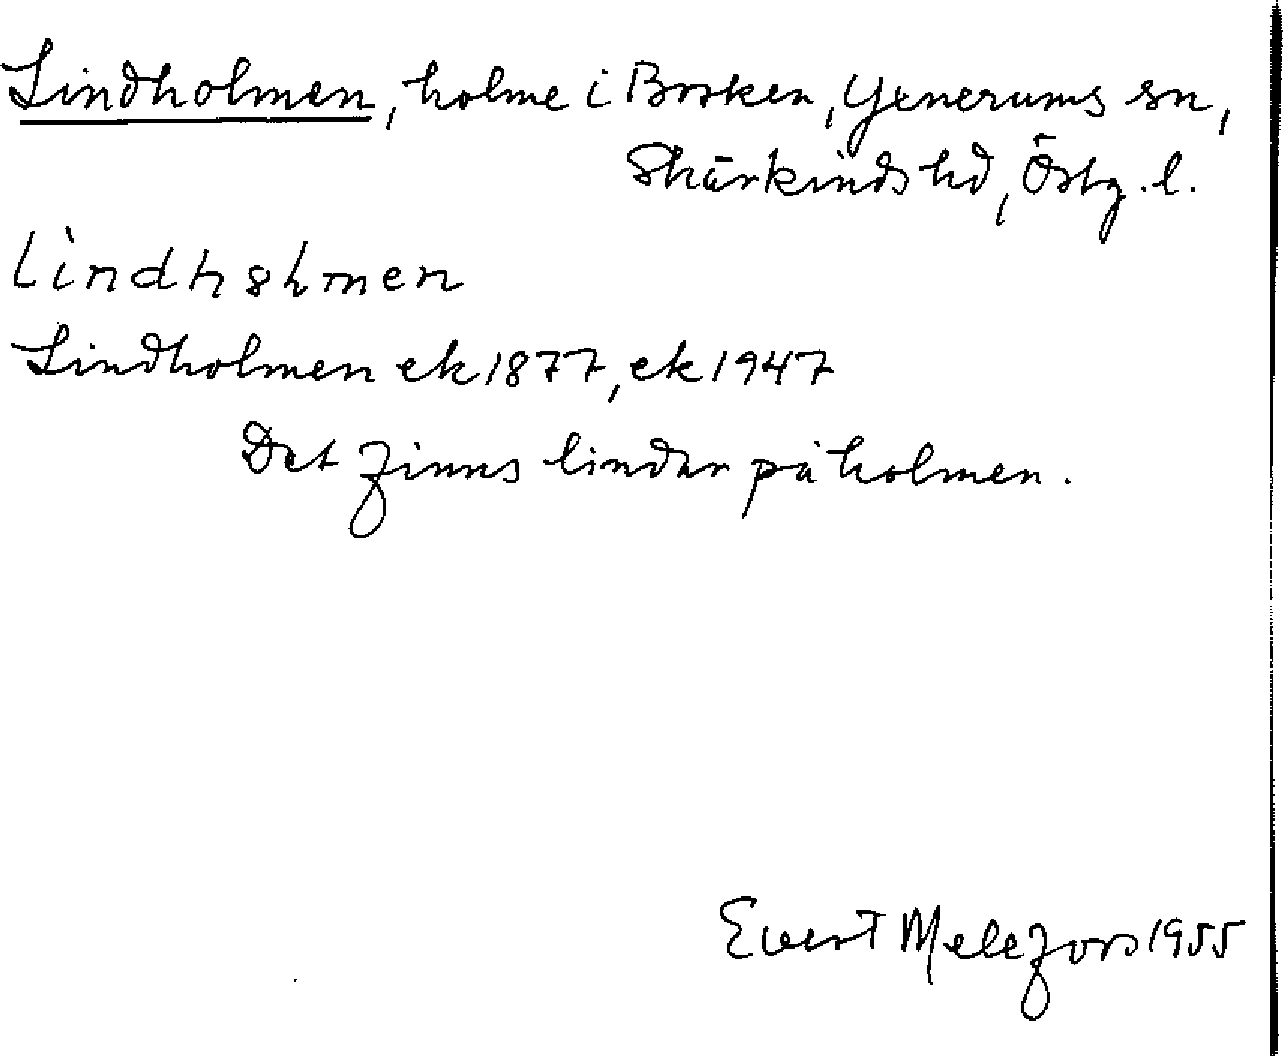 Lindholmen, holme i Borken, Yxnerums sn,
Skärkinds hd, Östg. l.
Lindholmen ek 1877, ek 1947
Det finns lindar på holmen.
Evert Melefors 1955